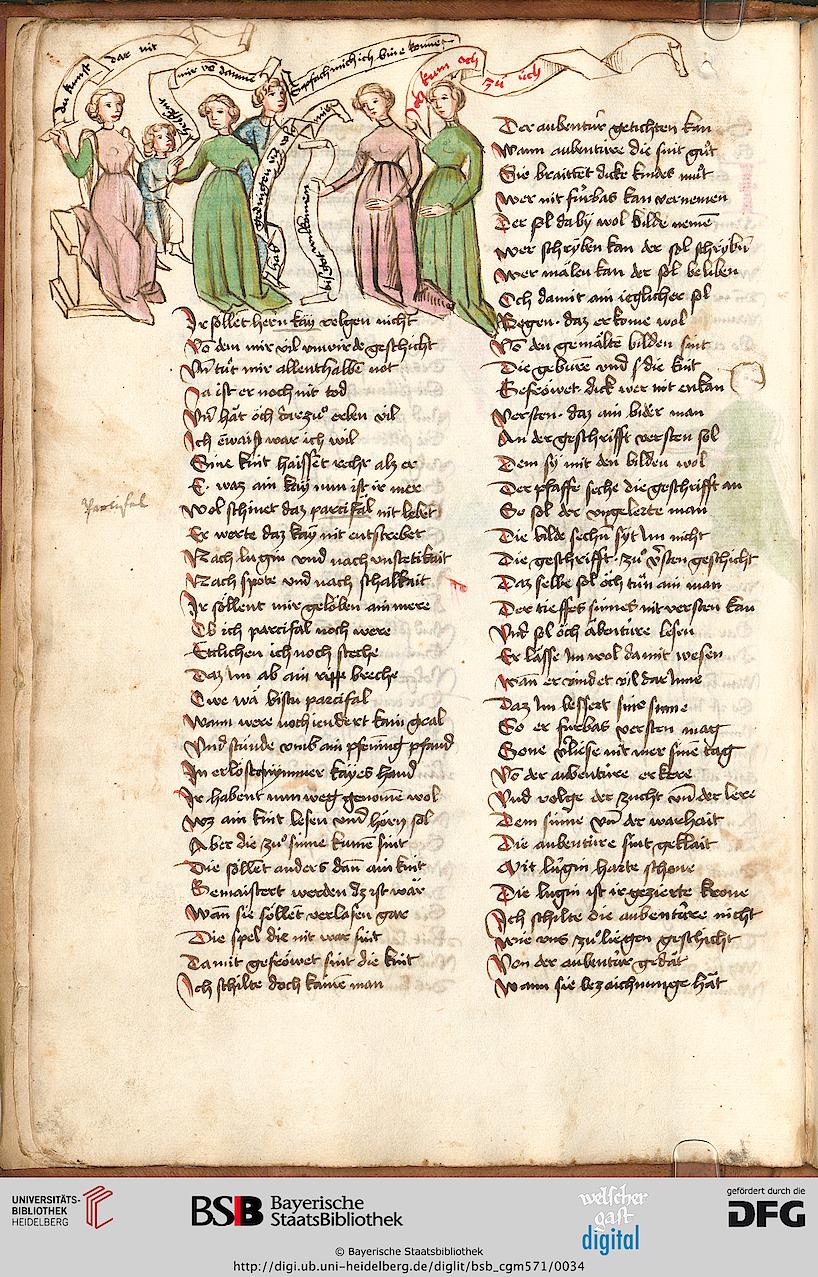 du kumst dar nit
mir vō danne
Enpfach mich ich bin e komē
Ich kum och
zů üch
gedingen
bis got wilkomen
Ir söllet hern kay volgen nicht
Vō dem mir vil vnwirde geschicht
Vñ tůt mir allenthalbē not
Ja ist er noch nit tod
Vñ hät öch darzů erben vil
Ich enwaiß war ich wil
Sine kint haissēt recht als er
E. waz ain kay nun ist ir mer
Wol schinet daz parcifal nit lebet
parcifal
Er werte daz kay nit entstrebet
Nach lugin vnd nach vnstetikait
Nach spote vnd nach schalkait
Ir söllent mir gelöben ain mere
Ob ich parcifal noch were
Ettlichen ich noch steche
Daz Im ab ain ripp breche
Owe wä bistu parcifal
Wann were noch iendert kain gral
Vnd stünde vmb ain pfennig pfand
In erlöst nymmer kayes hand
Ir habent nun weg genomē wol
Wz ain kint lesen vnd hörn sol
Aber die zů sinne kumē sint
Die söllēt anders dañ ain kint
Gemaistert werden dz ist war
Wañ sie söllēt verlasen gar
Die spel die nit war sint
Da mit gefröwet sint die kint
Ich schilte doch kainē man
Der aubentür getichten kan
Wann aubentüre die sint gůt
Sie braittēt dicke kindes můt
Wer nit fürbas kan vernemen
Der sol da by wol bilde nemē
Wer schryben kan der sol schrybñ
Wer mälen kan der sol beliben
Och damit ain ieglicher sol
Zögen daz er kōme wol
Vō den gemälte bilden sint
Die gebüre vnd die kint
Gefröwet dick wer nit enkan
Versten daz ain bider man
An der geschrifft versten sol
Dem sy mit den bilden wol
Der pfaffe seche die geschrifft an
So sol der vngelerte man
Die bilde sechñ syt Im nicht
Die geschrifft zů v̄sten geschicht
Daz selbe sol öch tůn ain man
Der tieffes sinnes nit versten kan
Vnd sol öch abentüre lesen
Er lässe Im wol damit wesen
Wan er vindet vil dar Inne
Daz Im bessert sine sinne
So er fürbas versten mag
Sone v̄liese nit mer sine tag
Vō der aubentüre er kere
Vnd volge der zucht vñ der lere
Dem sinne vñ der warhait
Die aubentüre sint geklait
Mit lugin harte schone
Die lugin ist ir gezierte krone
Ich schilte die aubentüre nicht
Wie vns zů liegen geschicht
Von der aubentür getät
Wann sie bezaichnunge hät
UNIVERSITÄTS-
BIBLIOTHEK
HEIDELBERG
BSB Bayerische
StaatsBibliothek
welscher
gast
digital
gefördert durch die
DFG
© Bayerische Staatsbibliothek
http://digi.ub.uni-heidelberg.de/diglit/bsb_cgm571/0034